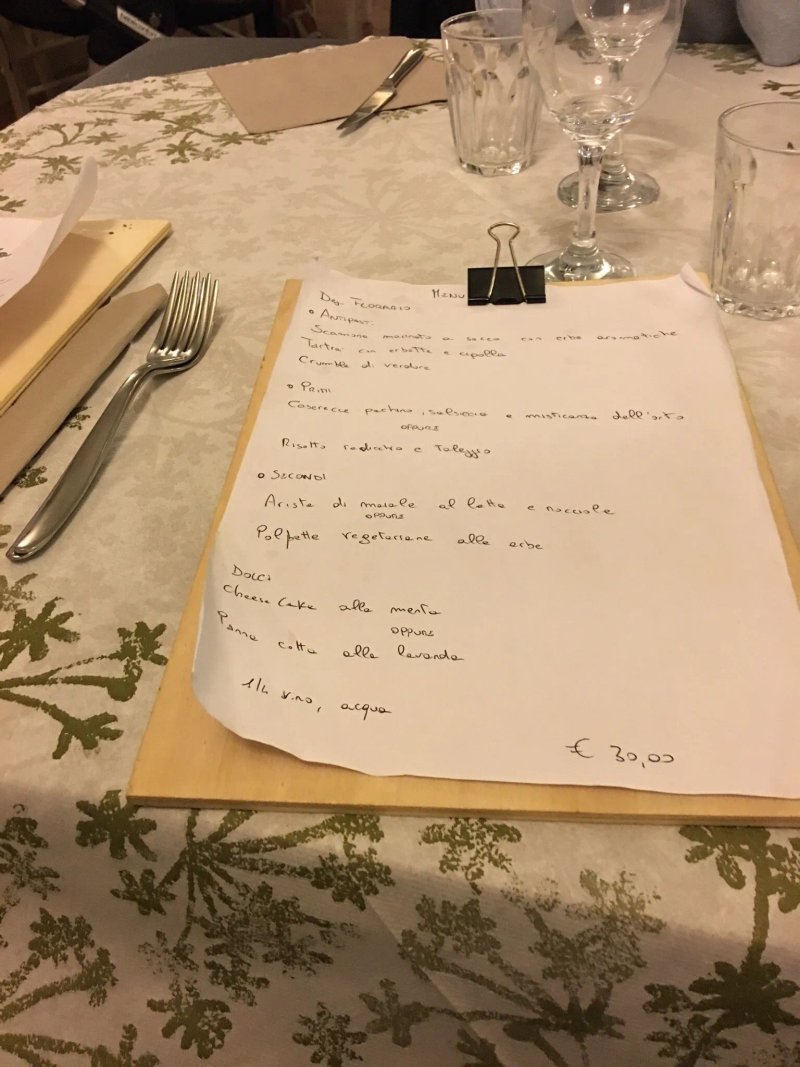 MENU
Deg. FLORARIO
• ANTIPASTI
Scamone marinato a secco con erbe aromatiche
Tartrà con erbette e cipolla
Crumble di verdure
• PRIMI
Caserecce pachino, salsiccia e misticanza dell'orto
OPPURE
Risotto radicchio e Taleggio
• SECONDI
Arista di maiale al latte e nocciole
OPPURE
Polpette vegetariane alle erbe
DOLCI
Cheese cake alla menta
OPPURE
Panna cotta alla lavanda
1/4 vino, acqua
€ 30,00